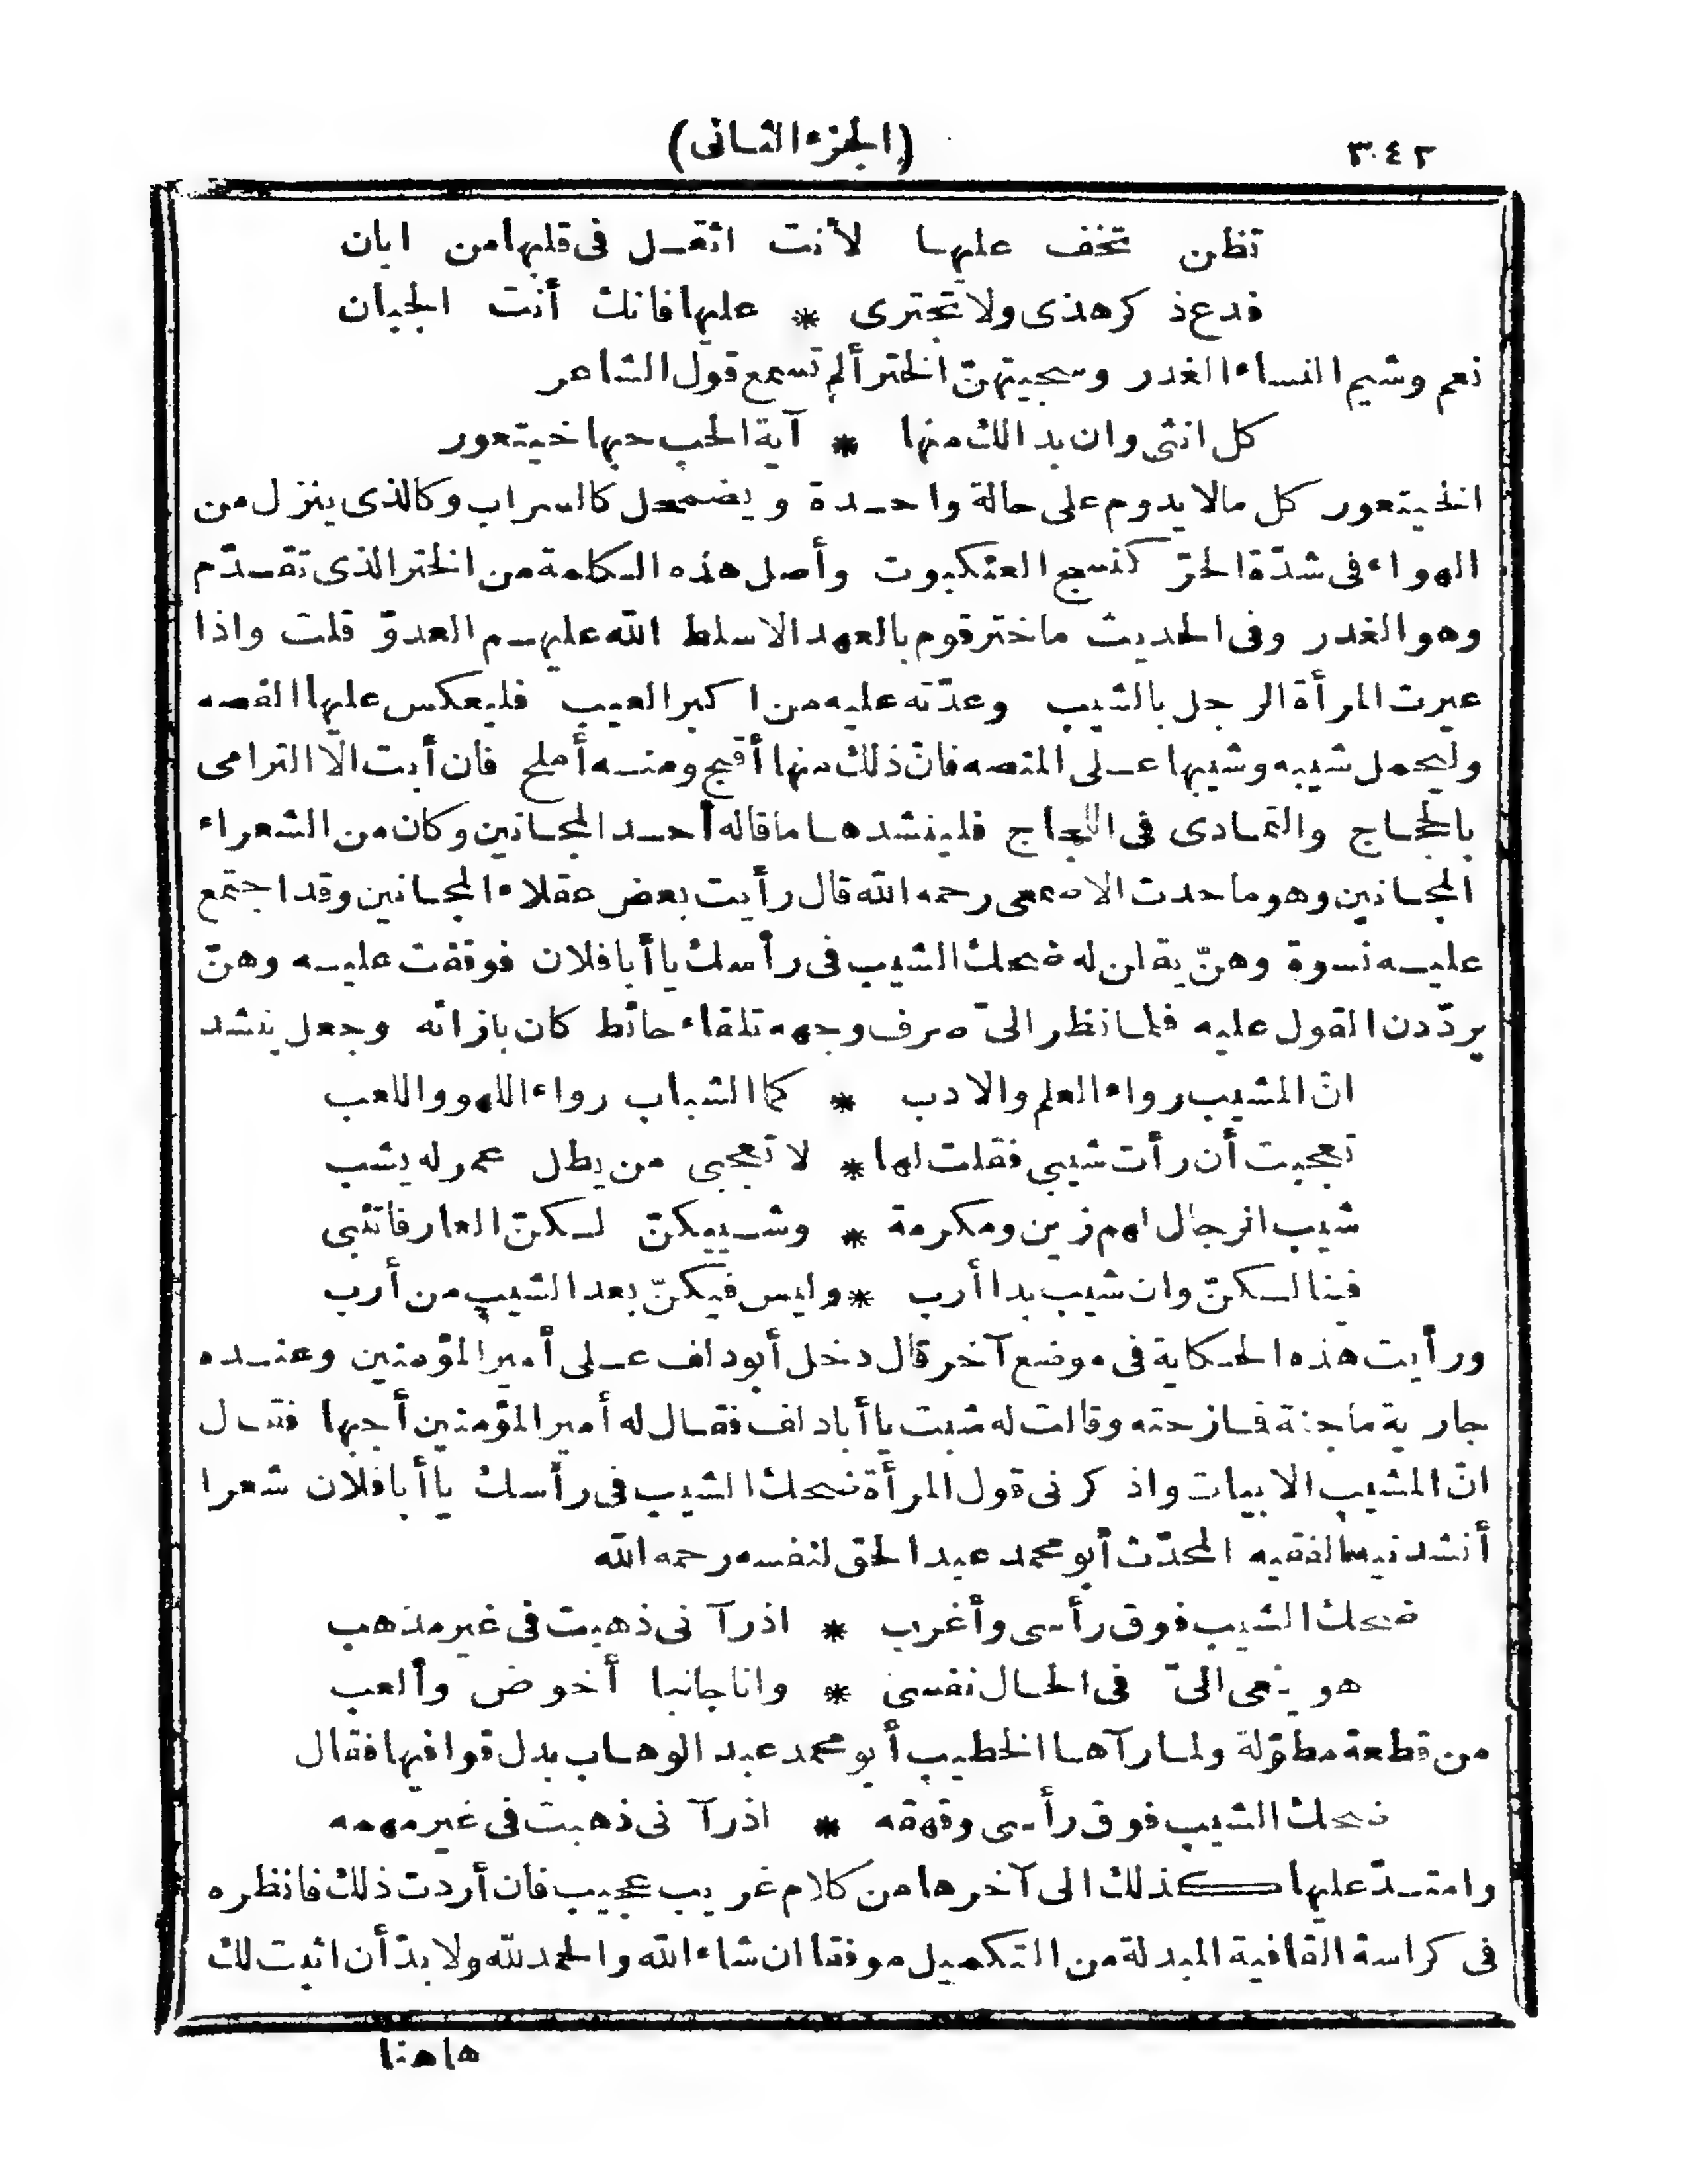 ٣٤٢
(الجزء الثانى)
تظن تخف عليها لأنت اثقل فى قلبها من ابان
فدع ذ كرهذى ولا تجترى * عليها فانك أنت الجبان
نعم وشيم النساء الغدر وسجيتهنّ الختر ألم تسمع قول الشاعر
كل انثى وان بدا لك منها * آية الحب حبها خيتعور
الخيتعور كل مالا يدوم على حالة واحدة ويضمحل كالسراب وكالذى ينزل من
الهواء فى شدّة الحرّ كنسج العنكبوت وأصل هذه الكلمة من الختر الذى تقدّم
وهو الغدر وفى الحديث ما ختر قوم بالعهد الا سلط الله عليهم العدوّ قلت واذا
عيرت المرأة الرجل بالشيب وعدّته عليه من اكبر العيب فليعكس عليها القصه
وليحمل شيبه وشيبها على المنصه فانّ ذلك منها أقبح ومنه أملح فان أبت الّا الترامى
بالحجاج والتمادى فى اللجاج فلينشدها ما قاله أحد المجانين وكان من الشعراء
المجانين وهو ما حدث الاصمعى رحمه الله قال رأيت بعض عقلاء المجانين وقد اجتمع
عليه نسوة وهنّ يقلن له ضحك الشيب فى رأسك يا أبا فلان فوقفت عليه وهنّ
يردّدن القول عليه فلما نظر الىّ صرف وجهه تلقاء حائط كان بازائه وجعل ينشد
انّ المشيب رواء العلم والادب * كما الشباب رواء اللهو واللعب
تعجبت أن رأت شيبى فقلت لها * لا تعجبى من يطل عمر له يشب
شيب الرجال لهم زين ومكرمة * وشيبكنّ لكنّ العار فاتئبى
فينا لكنّ وان شيب بدا أرب * وليس فيكنّ بعد الشيب من أرب
ورأيت هذه الحكاية فى موضع آخر قال دخل أبو دلف على أمير المؤمنين وعنده
جارية ماجنة فمازحته وقالت له شبت يا أبا دلف فقال له أمير المؤمنين أجبها فقال
انّ المشيب الابيات واذ كرنى قول المرأة ضحك الشيب فى رأسك يا أبا فلان شعرا
أنشدنيه الفقيه المحدّث أبو محمد عبد الحق لنفسه رحمه الله
ضحك الشيب فوق رأسى وأغرب * اذ رآ نى ذهبت فى غير مذهب
هو ينعى الىّ فى الحال نفسى * وانا جانبا أخوض وألعب
من قطعة مطوّلة ولما رآها الخطيب أبو محمد عبد الوهاب بدل قوافيها فقال
ضحك الشيب فوق رأسى وقهقه * اذ رآ نى ذهبت فى غير مهمه
وامتدّ عليها كذلك الى آخرها من كلام غريب عجيب فان أردت ذلك فانظره
فى كراسة القافية المبدلة من التكميل موفقا ان شاء الله والحمد لله ولا بدّ أن اثبت لك
هاهنا